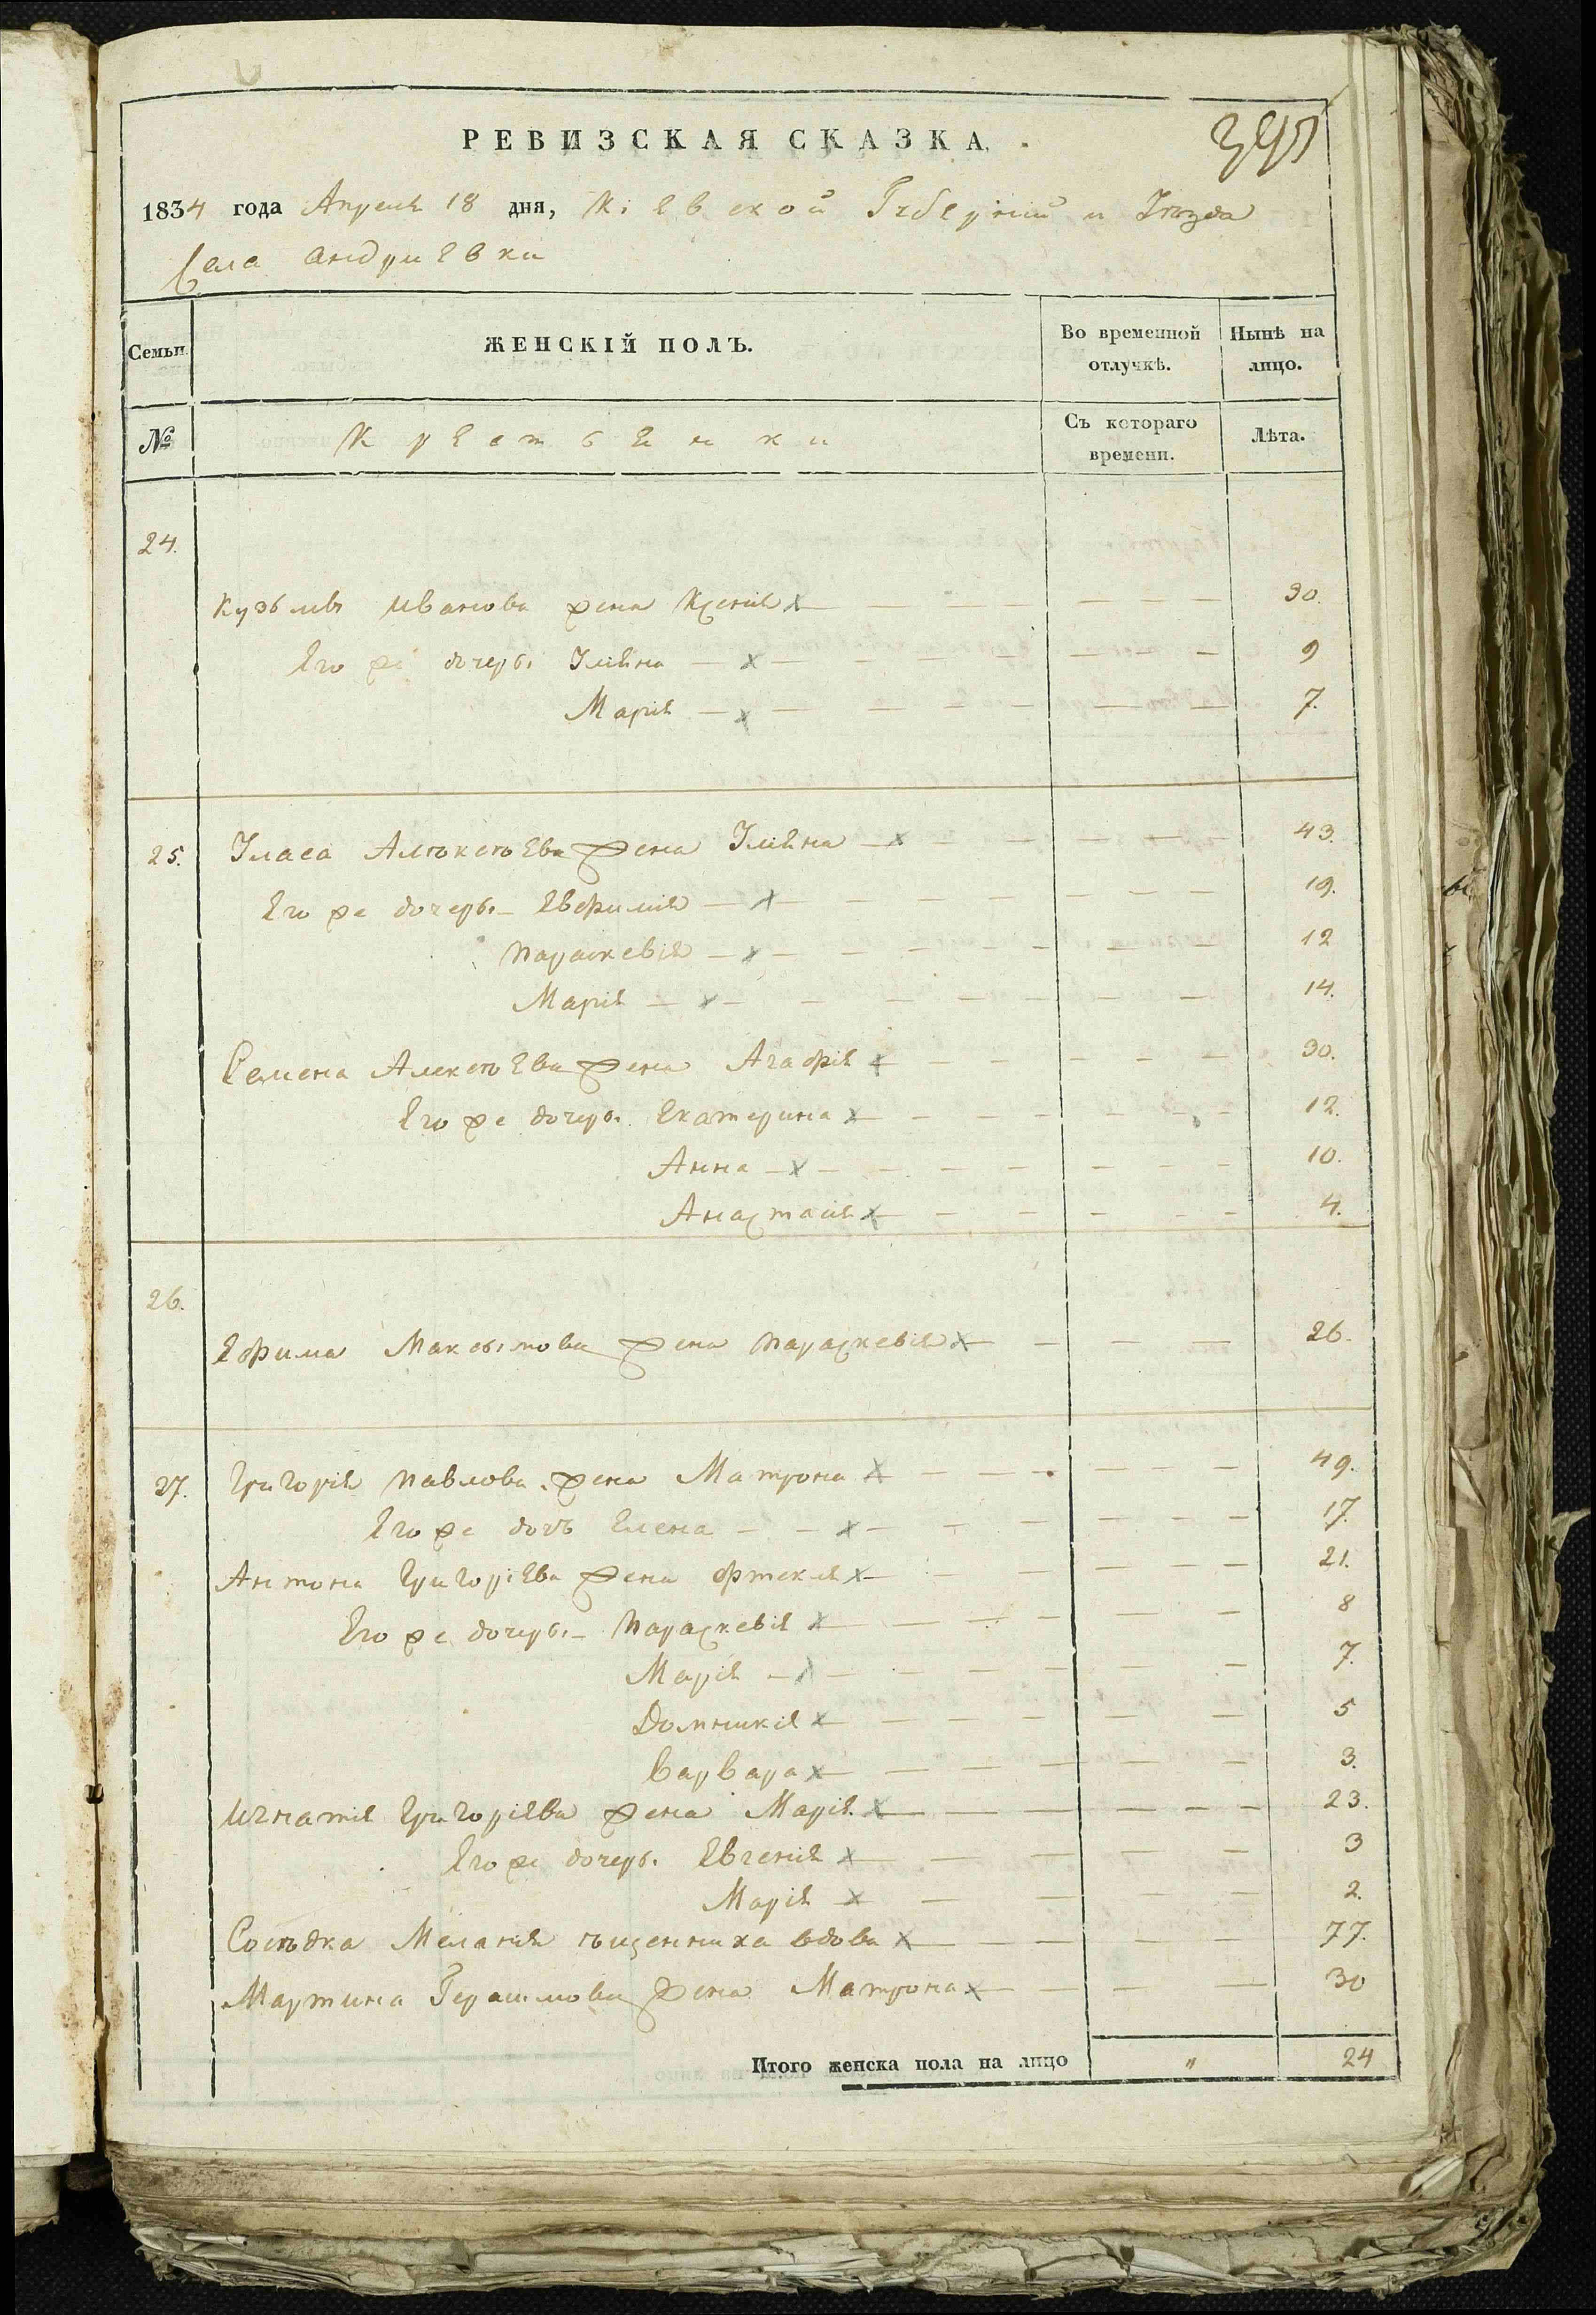 РЕВИЗСКАЯ СКАЗКА.
1834 года Апреля 18 дня, Кіевской Губерніи и Уѣзда
Села Андриевки
Семьи ЖЕНСКІЙ ПОЛЪ. Во временной отлучкѣ. Нынѣ на лицо.
№ Крестьянки Съ котораго времени. Лѣта.
24.
Кузьмы Иванова жена Ксенія 30.
Его же дочери Уліяна 9
Марія 7.
25. Уласа Алѣксѣева жена Уліяна 43.
Его же дочери Евфимія 19.
Параскевія 12
Марія 14.
Семена Алексѣева жена Агафія 30.
Его же дочери Екатерина 12.
Анна 10.
Анастасія 4.
26.
Ефима Максымова жена Параскевія 26.
27. Григорія Павлова жена Матрона 49.
Его же дочь Елена 17.
Антона Григоріева жена Фтекля 21.
Его же дочери Параскевія 8
Марія 7.
Домникія 5
Варвара 3.
Игнатія Григоріева жена Марія 23.
Его же дочери Евгенія 3
Марія 2.
Сосѣдка Меланія вдова 77.
Мартина Герасимова жена Матрона 30
Итого женска пола на лицо " 24